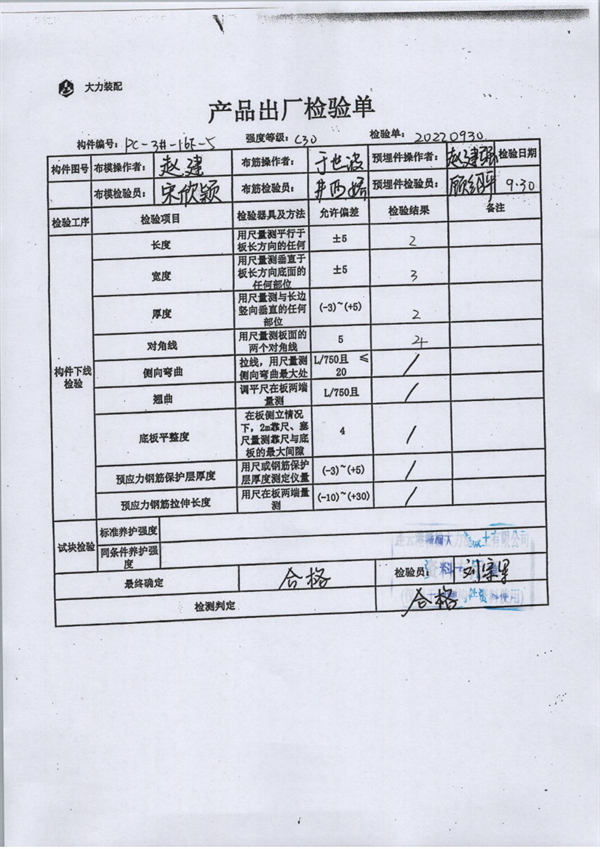 大力装配
产品出厂检验单
构件编号: PC-3#-16F-5 强度等级: C30 检验单: 20220930
构件图号 布模操作者: 赵建 布筋操作者: 于世波 预埋件操作者: 赵建 检验日期
布模检验员: 宋欣颖 布筋检验员: 预埋件检验员: 9:30
检验工序 检验项目 检验器具及方法 允许偏差 检验结果 备注
构件下线检验
长度 用尺量测平行于板长方向的任何 ±5 2
宽度 用尺量测垂直于板长方向底面的任何部位 ±5 3
厚度 用尺量测与长边竖向垂直的任何部位 (-3)~(+5) 2
对角线 用尺量测板面的两个对角线 5 4
侧向弯曲 拉线，用尺量测侧向弯曲最大处 L/750且≤20 /
翘曲 调平尺在板两端量测 L/750且 /
底板平整度 在板侧立情况下，2m靠尺、塞尺量测靠尺与底板的最大间隙 4 /
预应力钢筋保护层厚度 用尺或钢筋保护层厚度测定仪量 (-3)~(+5) /
预应力钢筋拉伸长度 用尺在板两端量测 (-10)~(+30) /
试块检验 标准养护强度
同条件养护强度
最终确定 合格 检验员:
检测判定 合格